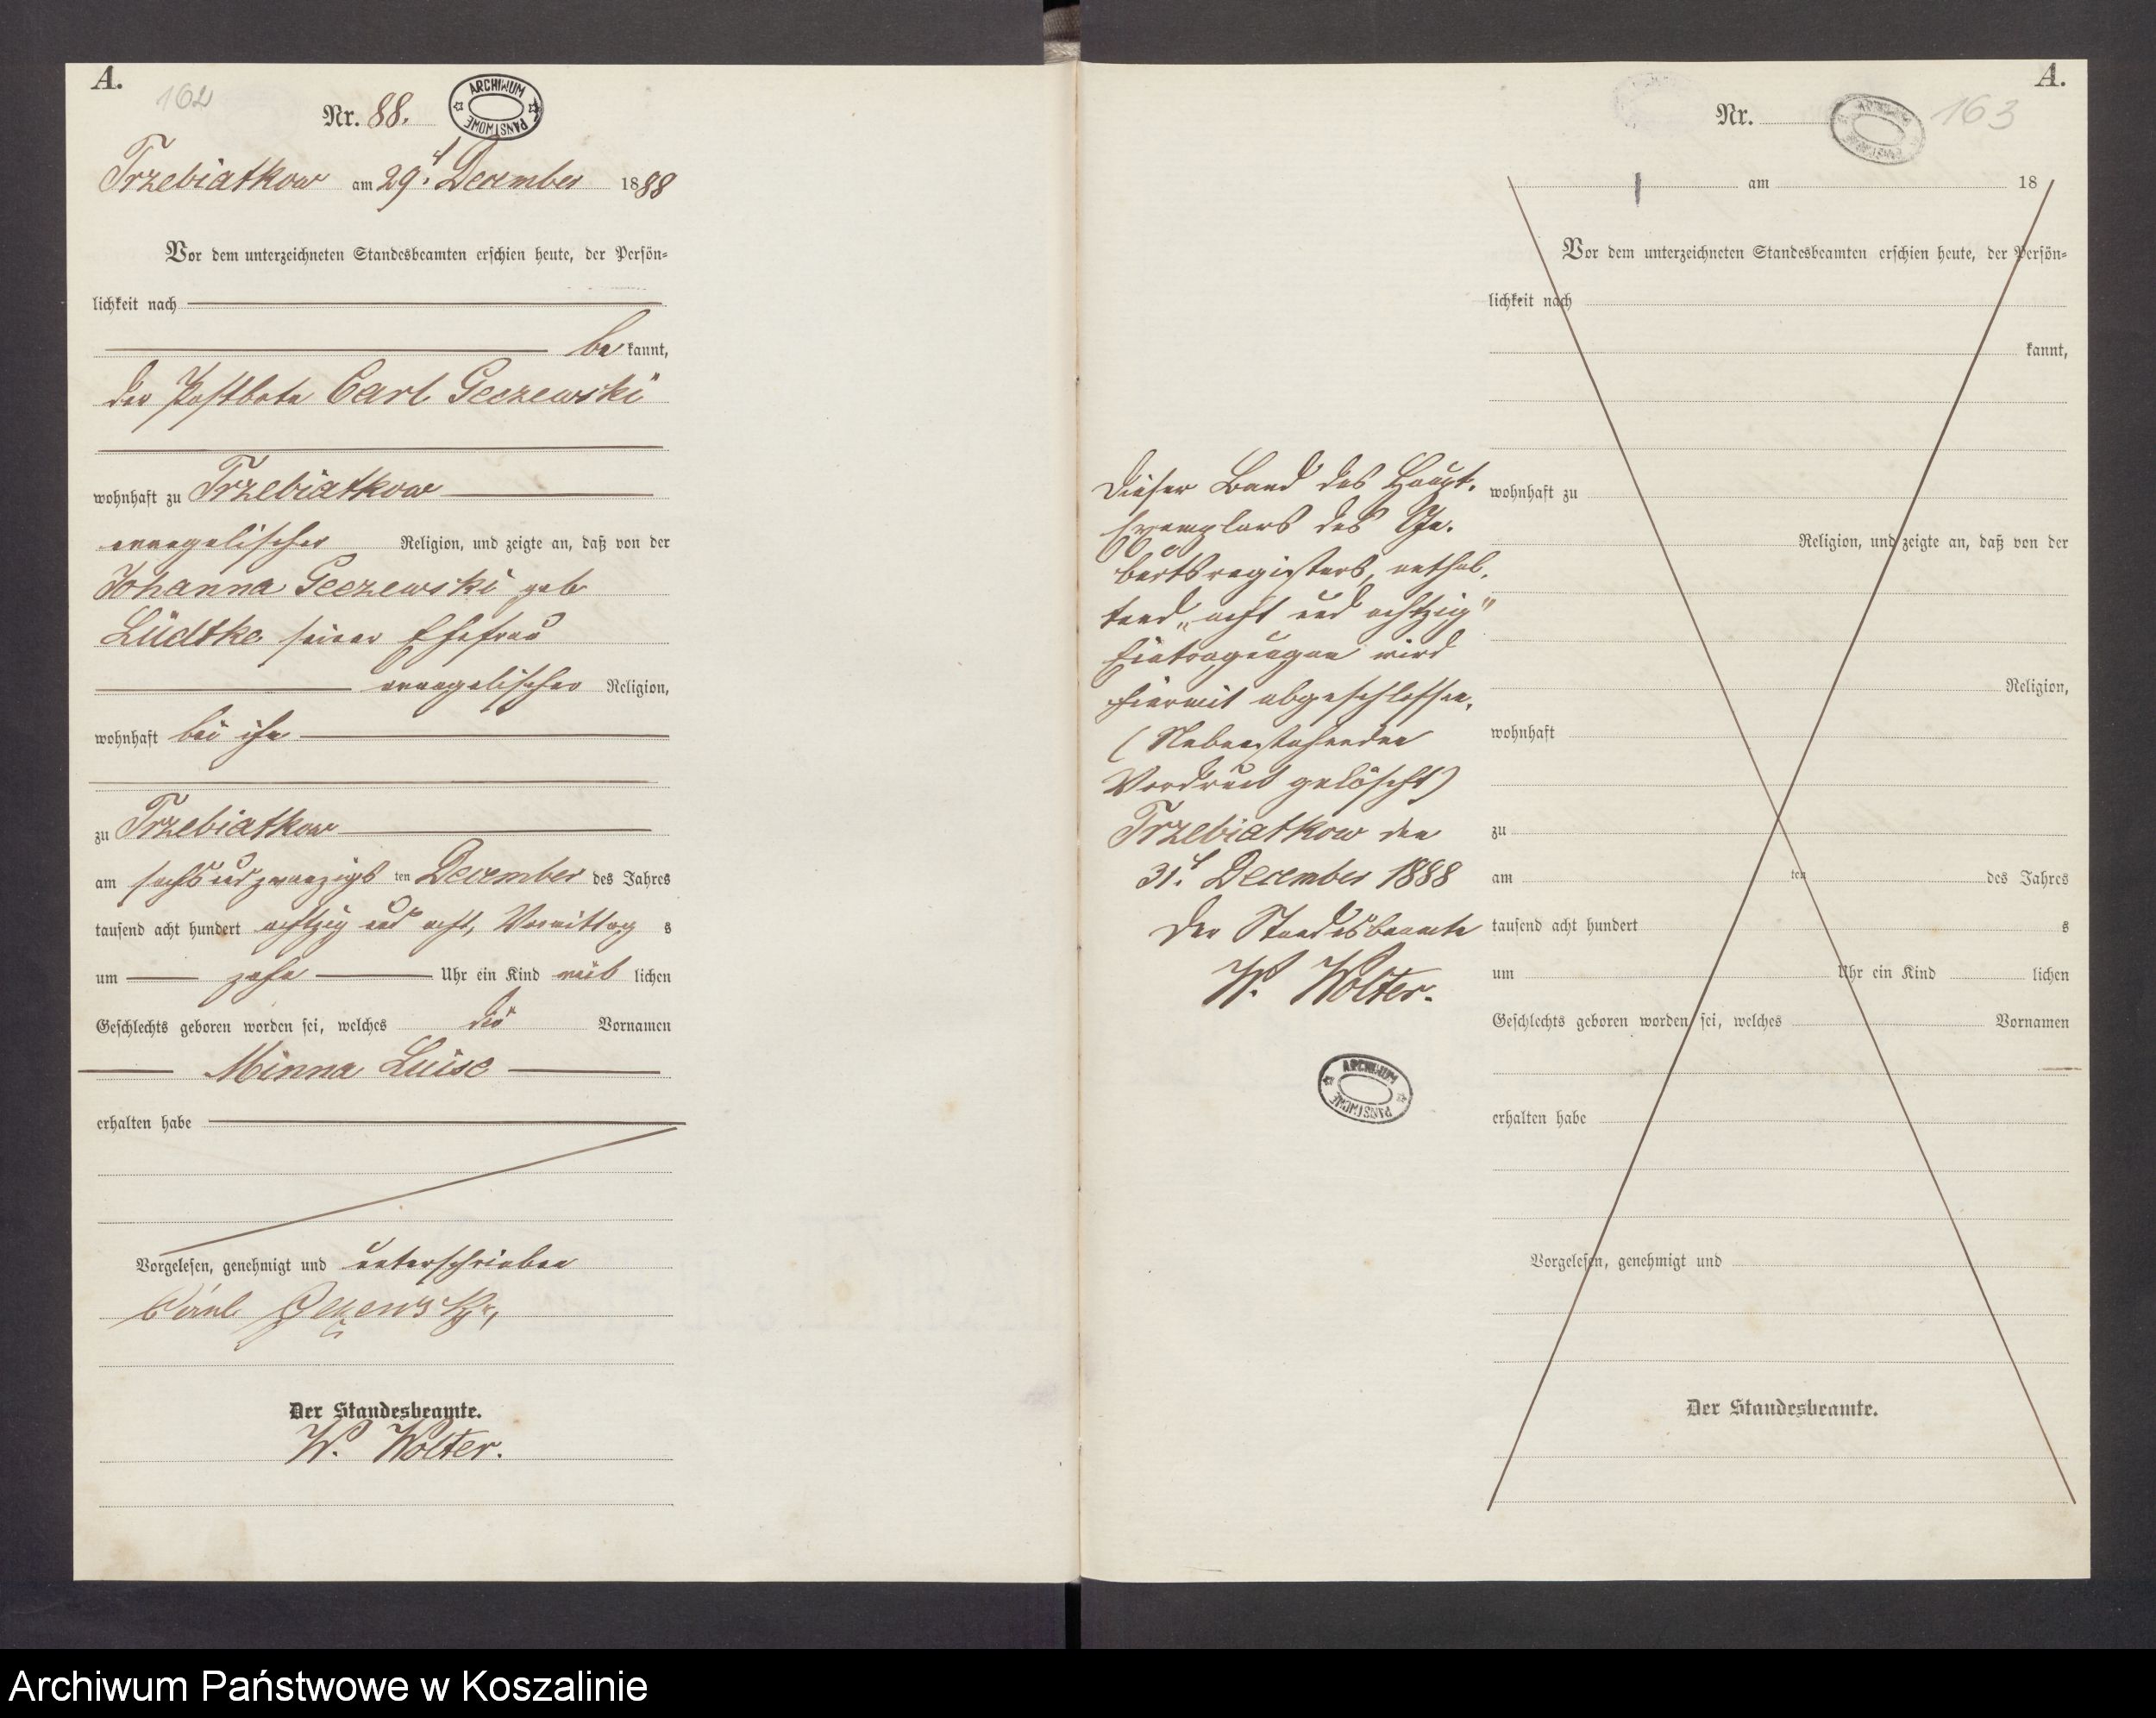 A.
162
Nr. 88.
ARCHIWUM PAŃSTWOWE
Trzebiatkow am 29t. December 1888
Vor dem unterzeichneten Standesbeamten erschien heute, der Persön=
lichkeit nach
be kannt,
der Postbote Carl Geczewski
wohnhaft zu Trzebiatkow
evangelischer Religion, und zeigte an, daß von der
Johanna Geczewski geb
Lüdtke seiner Ehefrau
evangelischer Religion,
wohnhaft bei ihm
zu Trzebiatkow
am sechs und zwanzigs ten December des Jahres
tausend acht hundert achtzig und acht, Vormittag s
um zehn Uhr ein Kind weib lichen
Geschlechts geboren worden sei, welches die Vornamen
Minna Luise
erhalten habe
Vorgelesen, genehmigt und unterschrieben
Der Standesbeamte.
W. Wolter.
A.
163
Nr.
ARCHIWUM PAŃSTWOWE
am 18
Vor dem unterzeichneten Standesbeamten erschien heute, der Persön=
lichkeit nach
kannt,
wohnhaft zu
Religion, und zeigte an, daß von der
Religion,
wohnhaft
zu
am ten des Jahres
tausend acht hundert s
um Uhr ein Kind lichen
Geschlechts geboren worden sei, welches Vornamen
erhalten habe
Vorgelesen, genehmigt und
Der Standesbeamte.
Dieser Band des Haupt-
Exemplars des Ge-
burtsregisters, enthal-
tend "acht und achtzig"
Eintragungen wird
hiermit abgeschlossen.
(Nebenstehender
Vordruck gelöscht)
Trzebiatkow den
31t. December 1888
Der Standesbeamte
W. Wolter.
ARCHIWUM PAŃSTWOWE
Archiwum Państwowe w Koszalinie